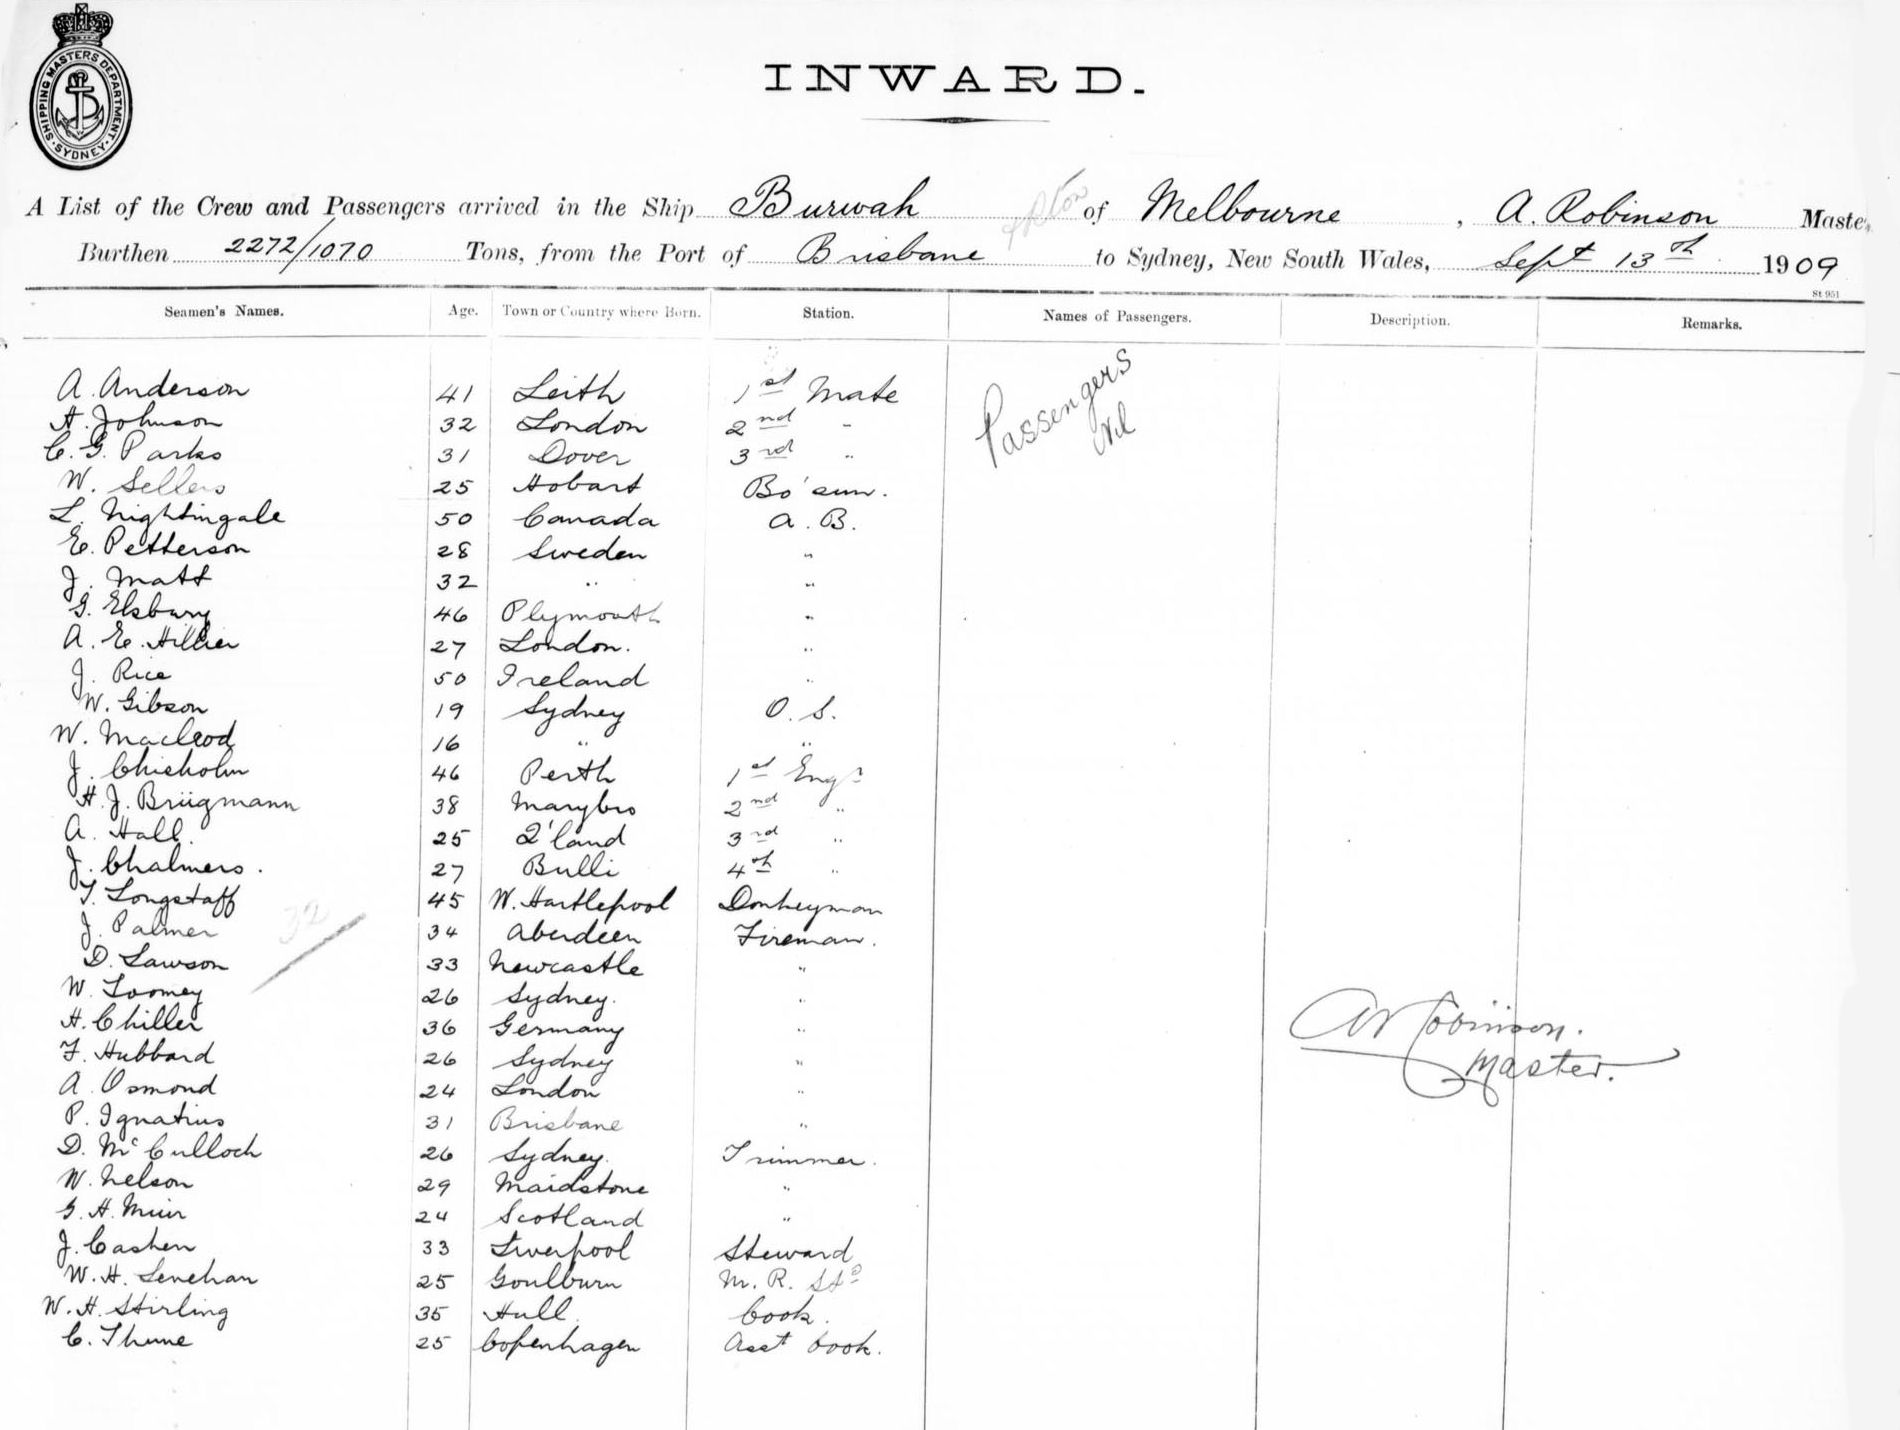 SHIPPING MASTERS DEPARTMENT.
SYDNEY
INWARD.
A List of the Crew and Passengers arrived in the Ship Burwah of Melbourne, A. Robinson Master
Burthen 2272/1070 Tons, from the Port of Brisbane to Sydney, New South Wales, Sept 13th 1909
St 951
Seamen's Names. Age. Town or Country where Born. Station. Names of Passengers. Description. Remarks.
Passengers
Nil
A. Anderson 41 Leith 1st Mate
H. Johnson 32 London 2nd "
C. G. Parks 31 Dover 3rd "
W. Sellers 25 Hobart Bo'sun.
L. Nightingale 50 Canada A. B.
E. Petterson 28 Sweden "
J. Matt 32 " "
G. Elsbury 46 Plymouth "
A. E. Hillier 27 London. "
J. Rice 50 Ireland "
W. Gibson 19 Sydney O. S.
W. Macleod 16 " "
J. Chisholm 46 Perth 1st Engr
H. J. Brügmann 38 Marybro 2nd "
A. Hall. 25 Q'land 3rd "
J. Chalmers. 27 Bulli 4th "
T. Longstaff 45 W. Hartlepool Donkeyman
J. Palmer 34 Aberdeen Fireman.
32
D. Lawson 33 Newcastle "
W. Toomey 26 Sydney. "
H. Chiller 36 Germany "
F. Hubbard 26 Sydney "
A. Osmond 24 London "
P. Ignatius 31 Brisbane "
D. McCulloch 26 Sydney. Trimmer.
W. Nelson 29 Maidstone "
G. H. Muir 24 Scotland "
J. Cashen 33 Liverpool Steward
W. H. Lenehan 25 Goulburn M. R. Std
W. H. Stirling 35 Hull. Cook.
C. Thune 25 Copenhagen Asst Cook.
A Robinson.
Master.